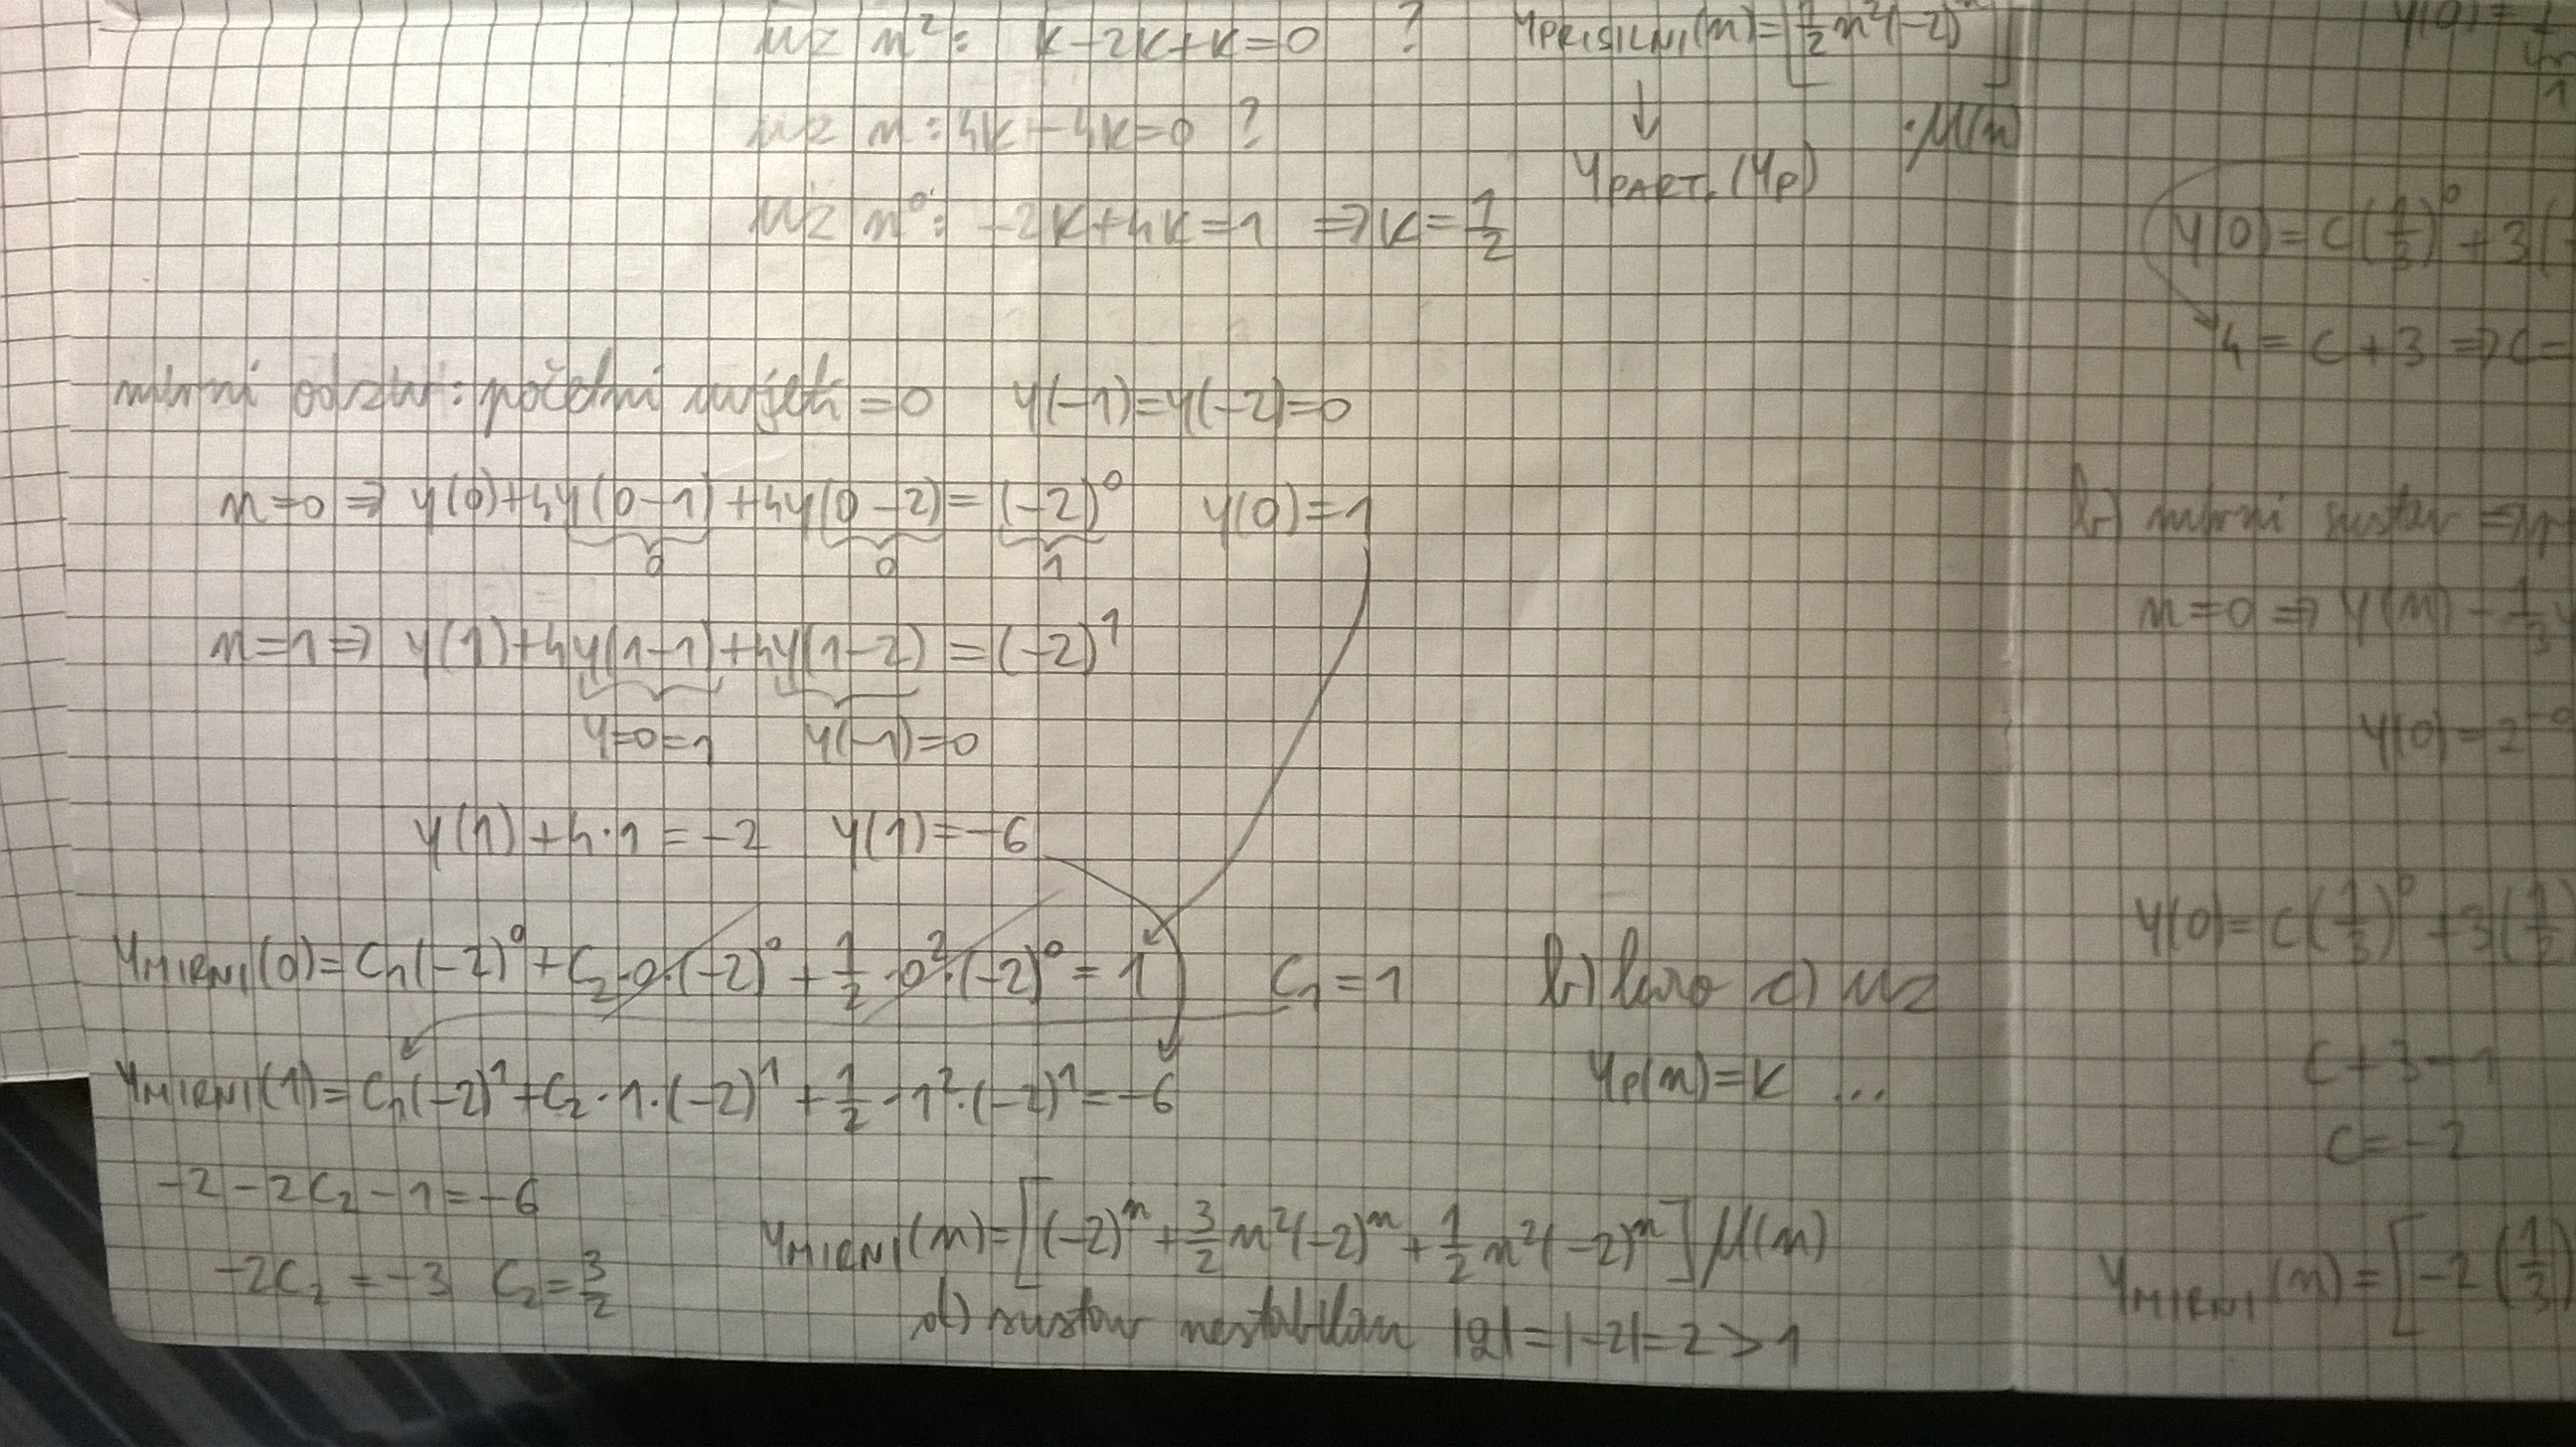 uz n²: K-2K+K=0 ?
uz n: 4K-4K=0 ?
uz n⁰: -2K+4K=1 ⇒ K=1/2
YPRISILNI(n)=[1/2 n²(-2)ⁿ]
·μ(n)
↓
YPART. (YP)
mirni odziv: početni uvjeti =0 y(-1)=y(-2)=0
n=0 ⇒ y(0)+4y(0-1)+4y(0-2)=(-2)⁰ y(0)=1
0 0 1
n=1 ⇒ y(1)+4y(1-1)+4y(1-2)=(-2)¹
y=0=1 y(-1)=0
y(1)+4·1=-2 y(1)=-6
YMIRNI(0)=C₁(-2)⁰+C₂·0·(-2)⁰+1/2·0²·(-2)⁰=1 C₁=1
YMIRNI(1)=C₁(-2)¹+C₂·1·(-2)¹+1/2·1²·(-2)¹=-6
-2-2C₂-1=-6
-2C₂=-3 C₂=3/2
b) kao c) uz
YP(n)=K ...
YMIRNI(n)=[(-2)ⁿ+3/2n²(-2)ⁿ+1/2n²(-2)ⁿ]μ(n)
d) sustav nestabilan |q|=|-2|=2>1
y(0)=
y(0)=C(1/3)⁰+3(
4=C+3 ⇒ C=
b) mirni sustav ⇒
n=0 ⇒ y(n)-1/3
y(0)=2⁻⁰
y(0)=C(1/3)⁰+3(1/2
C+3=1
C=-2
YMIRNI(n)=[-2(1/3)